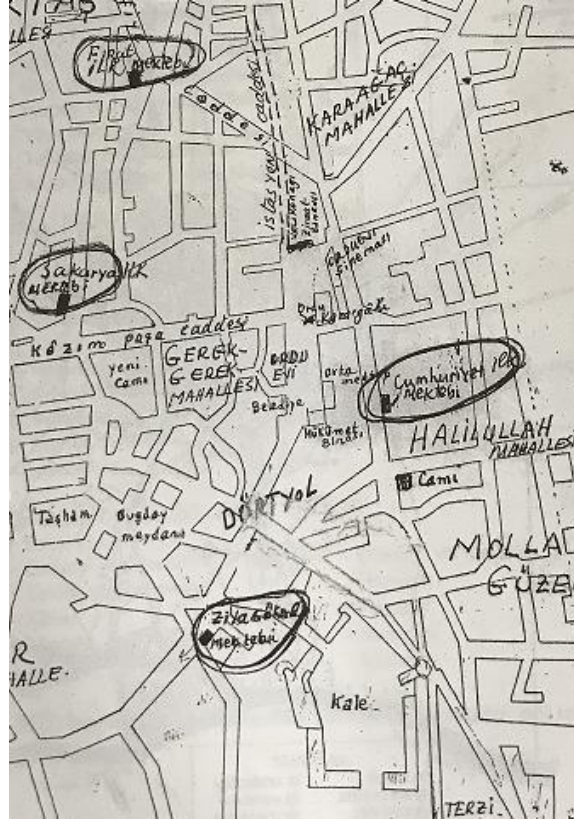 LLESİ
Fırat
İLK Mektebi
Caddesi
istasyon caddesi
KARAAĞAÇ
MAHALLESİ
Ziraat
Sakarya İlk
MEKTEBİ
Sineması
Ordu
Karargâhı
Kâzım paşa caddesi
yeni
Cami
GEREK-
GEREK
MAHALLESİ
ORDU
EVİ
Orta
Belediye
Hükümet
Binası
Cumhuriyet ilk
Mektebi
HALİLULLAH
MAHALLESİ
Cami
DÖRTYOL
Taşhan
Buğday
meydanı
MOLLA
GÜZE
Ziya Gökalp
Mektebi
R
HALLE.
Kale
TERZİ